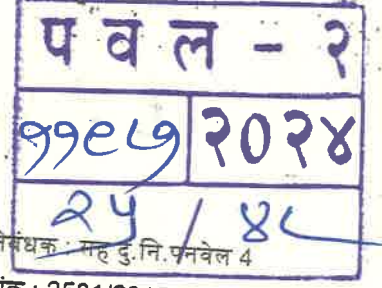 प व ल - २
११९७ २०२४
२५ / ४८
निबंधक : सह दु.नि.पनवेल 4